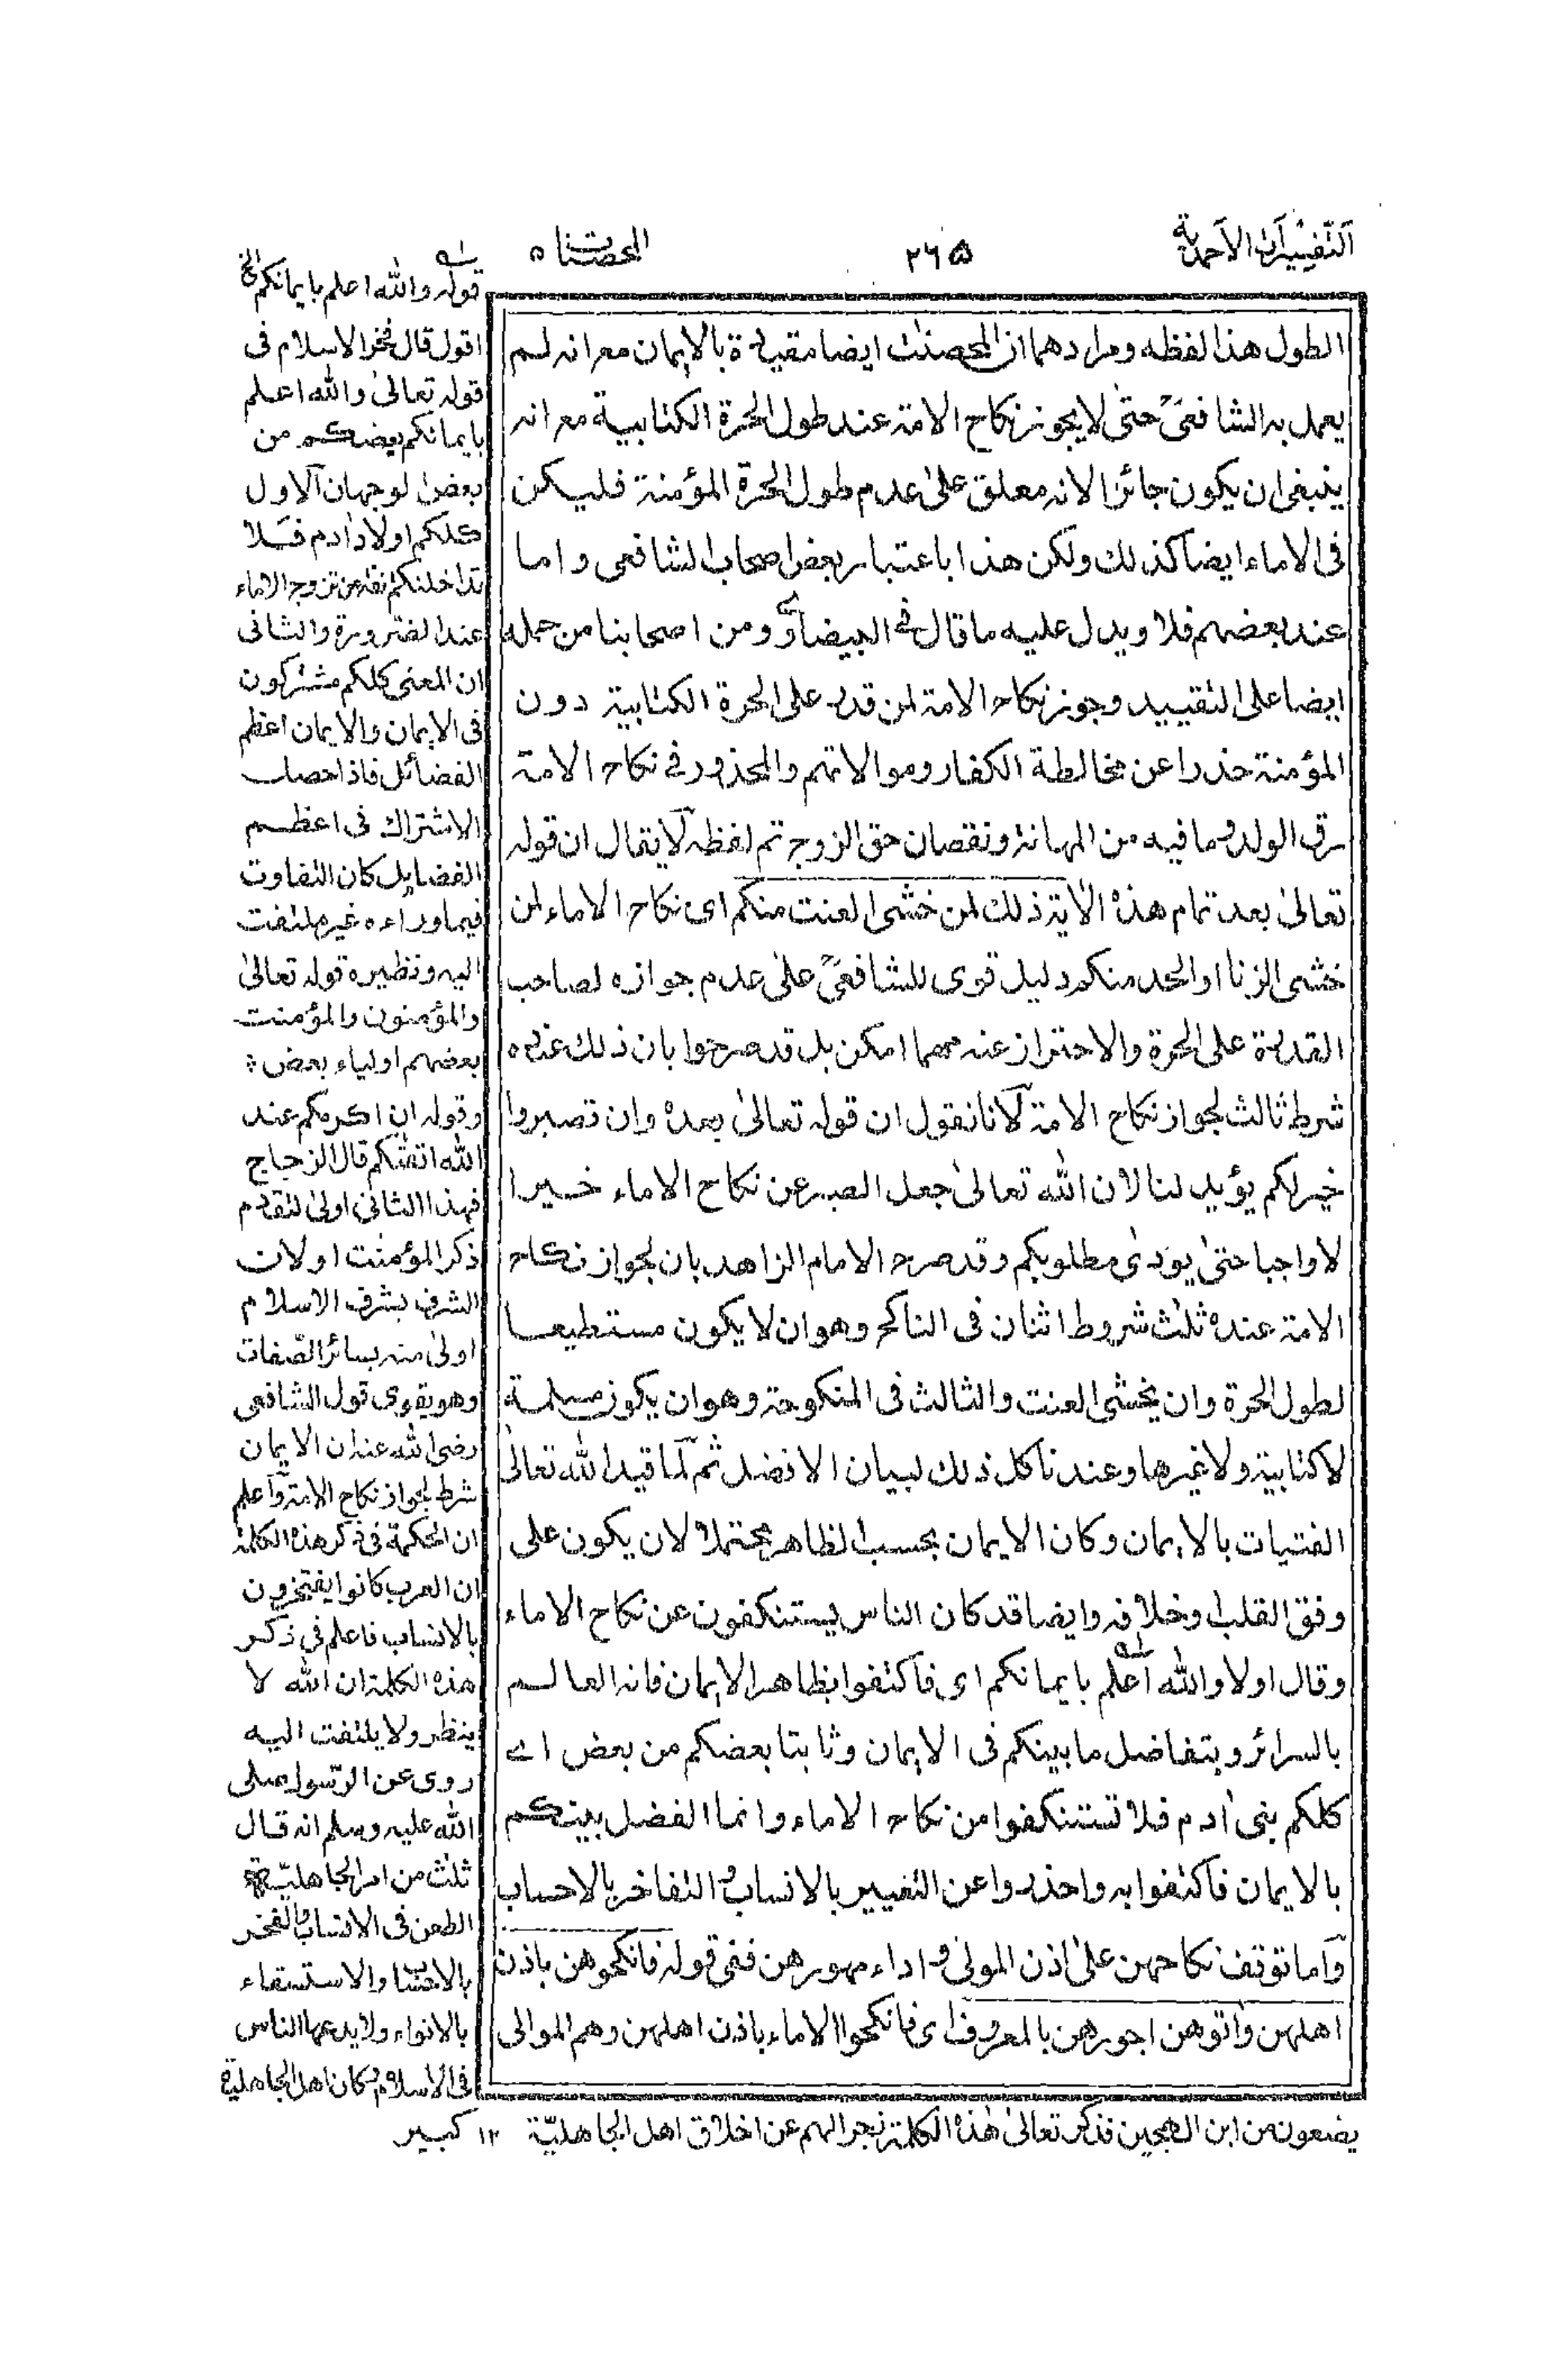 التفسيرات الاحمدية
٢٦٥
المحصنت ٥
الطول هذا لفظه ومرادهما ان المحصنٰت ايضا مقيدة بالايمان مع انه لم
يعمل به الشافعىؒ حتى لا يجوز نكاح الامة عند طول الحرة الكتابية مع انه
ينبغى ان يكون جائزا لانه معلق على عدم طول الحرة المؤمنة فليكن
فى الاماء ايضا كذلك ولكن هذا باعتبار بعض اصحاب الشافعى واما
عند بعضهم فلا ويدل عليه ما قال فى البيضاوى ومن اصحابنا من حمله
ايضا على التقييد وجوز نكاح الامة لمن قدر على الحرة الكتابية دون
المؤمنة حذرا عن مخالطة الكفار وموالاتهم والمحذور فى نكاح الامة
رق الولد وما فيه من المهانة ونقصان حق الزوج تم لفظه لا يقال ان قوله
تعالىٰ بعد تمام هذه الاٰية ذلك لمن خشى العنت منكم اى نكاح الاماء لمن
خشى الزنا او الحد منكم دليل قوى للشافعىؒ على عدم جوازه لصاحب
القدرة على الحرة والاحتراز عنه مهما امكن بل قد صرحوا بان ذلك عنده
شرط ثالث لجواز نكاح الامة لانا نقول ان قوله تعالىٰ بعده وان تصبروا
خير لكم يؤيد لنا لان الله تعالىٰ جعل الصبر عن نكاح الاماء خيرا
لا واجبا حتىٰ يودى مطلوبكم وقد صرح الامام الزاهد بان لجواز نكاح
الامة عنده ثلٰث شروط اثنان فى الناكح وهو ان لا يكون مستطيعا
لطول الحرة وان يخشى العنت والثالث فى المنكوحة وهو ان يكون مسلمة
لا كتابية ولا غيرها وعندنا كل ذلك لبيان الافضل ثم لما قيد الله تعالىٰ
الفتيات بالايمان وكان الايمان بحسب الظاهر محتملا لان يكون على
وفق القلب وخلافه وايضا قد كان الناس يستنكفون عن نكاح الاماء
وقال اولا والله اعلم بايمانكم اى فاكتفوا بظاهر الايمان فانه العالم
بالسرائر وبتفاضل ما بينكم فى الايمان وثابتا بعضكم من بعض اے
كلكم بنى اٰدم فلا تستنكفوا من نكاح الاماء وانما الفضل بينكم
بالايمان فاكتفوا به واحذروا عن التعيير بالانساب والتفاخر بالاحساب
واما توقف نكاحهن على اذن المولى واداء مهورهن ففى قوله فانكحوهن باذن
اهلهن واٰتوهن اجورهن بالمعروف اى فانكحوا الاماء باذن اهلهن وهم الموالى
قوله والله اعلم بايمانكم الخ
اقول قال فخر الاسلام فى
قوله تعالىٰ والله اعلم
بايمانكم بعضكم من
بعض لوجهان الاول
كلكم اولاد اٰدم فلا
تداخلنكم نفة عن تزوج الاماء
عند الضرورة والثانى
ان المعنى كلكم مشتركون
فى الايمان والايمان اعظم
الفضائل فاذا حصل
الاشتراك فى اعظم
الفضايل كان التفاوت
فيما وراءه غير ملتفت
اليه ونظيره قوله تعالىٰ
والمؤمنون والمؤمنت
بعضهم اولياء بعض
وقوله ان اكرمكم عند
الله اتقٰكم قال الزجاج
فهذا الثانى اولى لتقدم
ذكر المؤمنٰت او لان
الشرف بشرف الاسلام
اولىٰ منه بسائر الصفات
وهو يقوى قول الشافعى
رضى الله عنه ان الايمان
شرط لجواز نكاح الامة واعلم
ان الحكمة فى ذكر هذه الكلمة
ان العرب كانوا يفتخرون
بالانساب فاعلم فى ذكر
هذه الكلمة ان الله لا
ينظر ولا يلتفت اليه
روى عن الرسول صلى
الله عليه وسلم انه قال
ثلٰث من امر الجاهلية
الطعن فى الانساب والفخر
بالاحساب والاستسقاء
بالانواء ولا يدعها الناس
فى الاسلام وكان اهل الجاهلية
يضعون من ابن الهجين فذكر تعالىٰ هٰذه الكلمة زجرا لهم عن اخلاق اهل الجاهلية ١٢ كبير